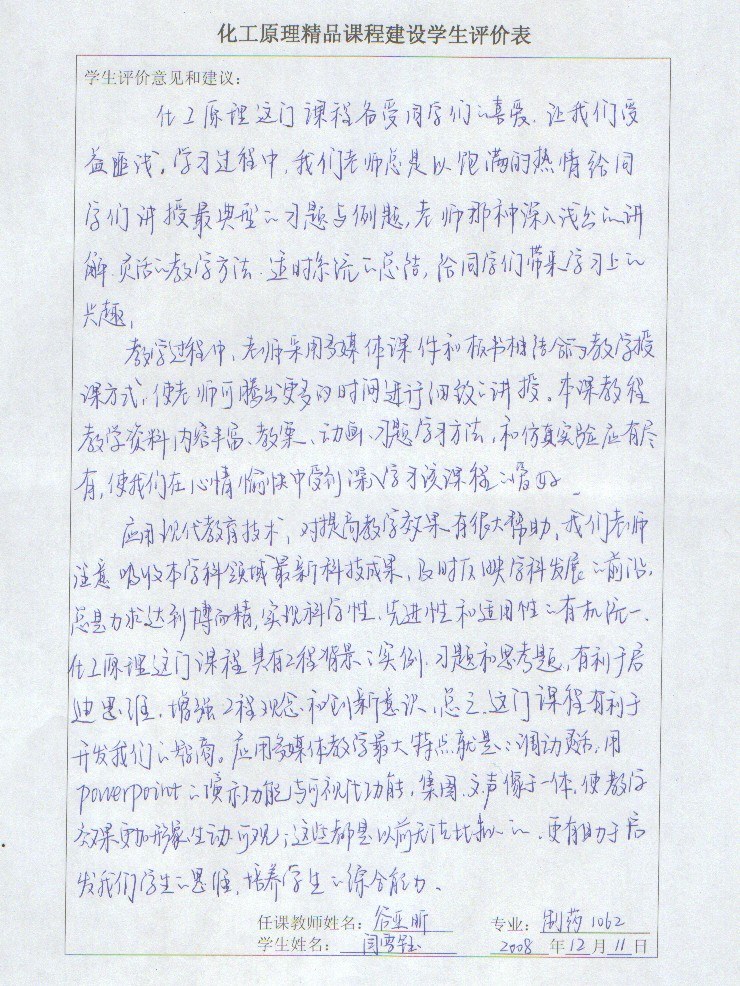 化工原理精品课程建设学生评价表
学生评价意见和建议:
化工原理这门课程备受同学们的喜爱.让我们受
益匪浅.学习过程中,我们老师总是以饱满的热情给同
学们讲授最典型的习题与例题,老师那种深入浅出的讲
解.灵活的教学方法.适时系统的总结,给同学们带来学习上的
兴趣.
教学过程中,老师采用多媒体课件和板书相结合的教学授
课方式,使老师可腾出更多的时间进行细致的讲授。本课教程
教学资料内容丰富、教案、动画、习题学习方法,和仿真实验应有尽
有,使我们在心情愉快中受到深入学习该课程的
应用现代教育技术,对提高教学效果有很大帮助,我们老师
注意吸收本学科领域最新科技成果,及时反映学科发展的前沿,
总是力求达到博而精,实现科学性、先进性和适用性的有机统一.
化工原理这门课程具有工程背景的实例.习题和思考题,有利于启
迪思维,增强工程观念和创新意识,总之.这门课程有利于
开发我们的智商。应用多媒体教学最大特点就是:调动灵活,用
powerpoint的演示功能与可视化功能,集图.文.声像于一体,使教学
效果更加形象生动可观;这些都是以前无法比拟的.更有助于启
发我们学生的思维,培养学生的综合能力.
任课教师姓名: 谷亚昕 专业: 制药1062
学生姓名: 闫雪 2008 年 12 月 11 日